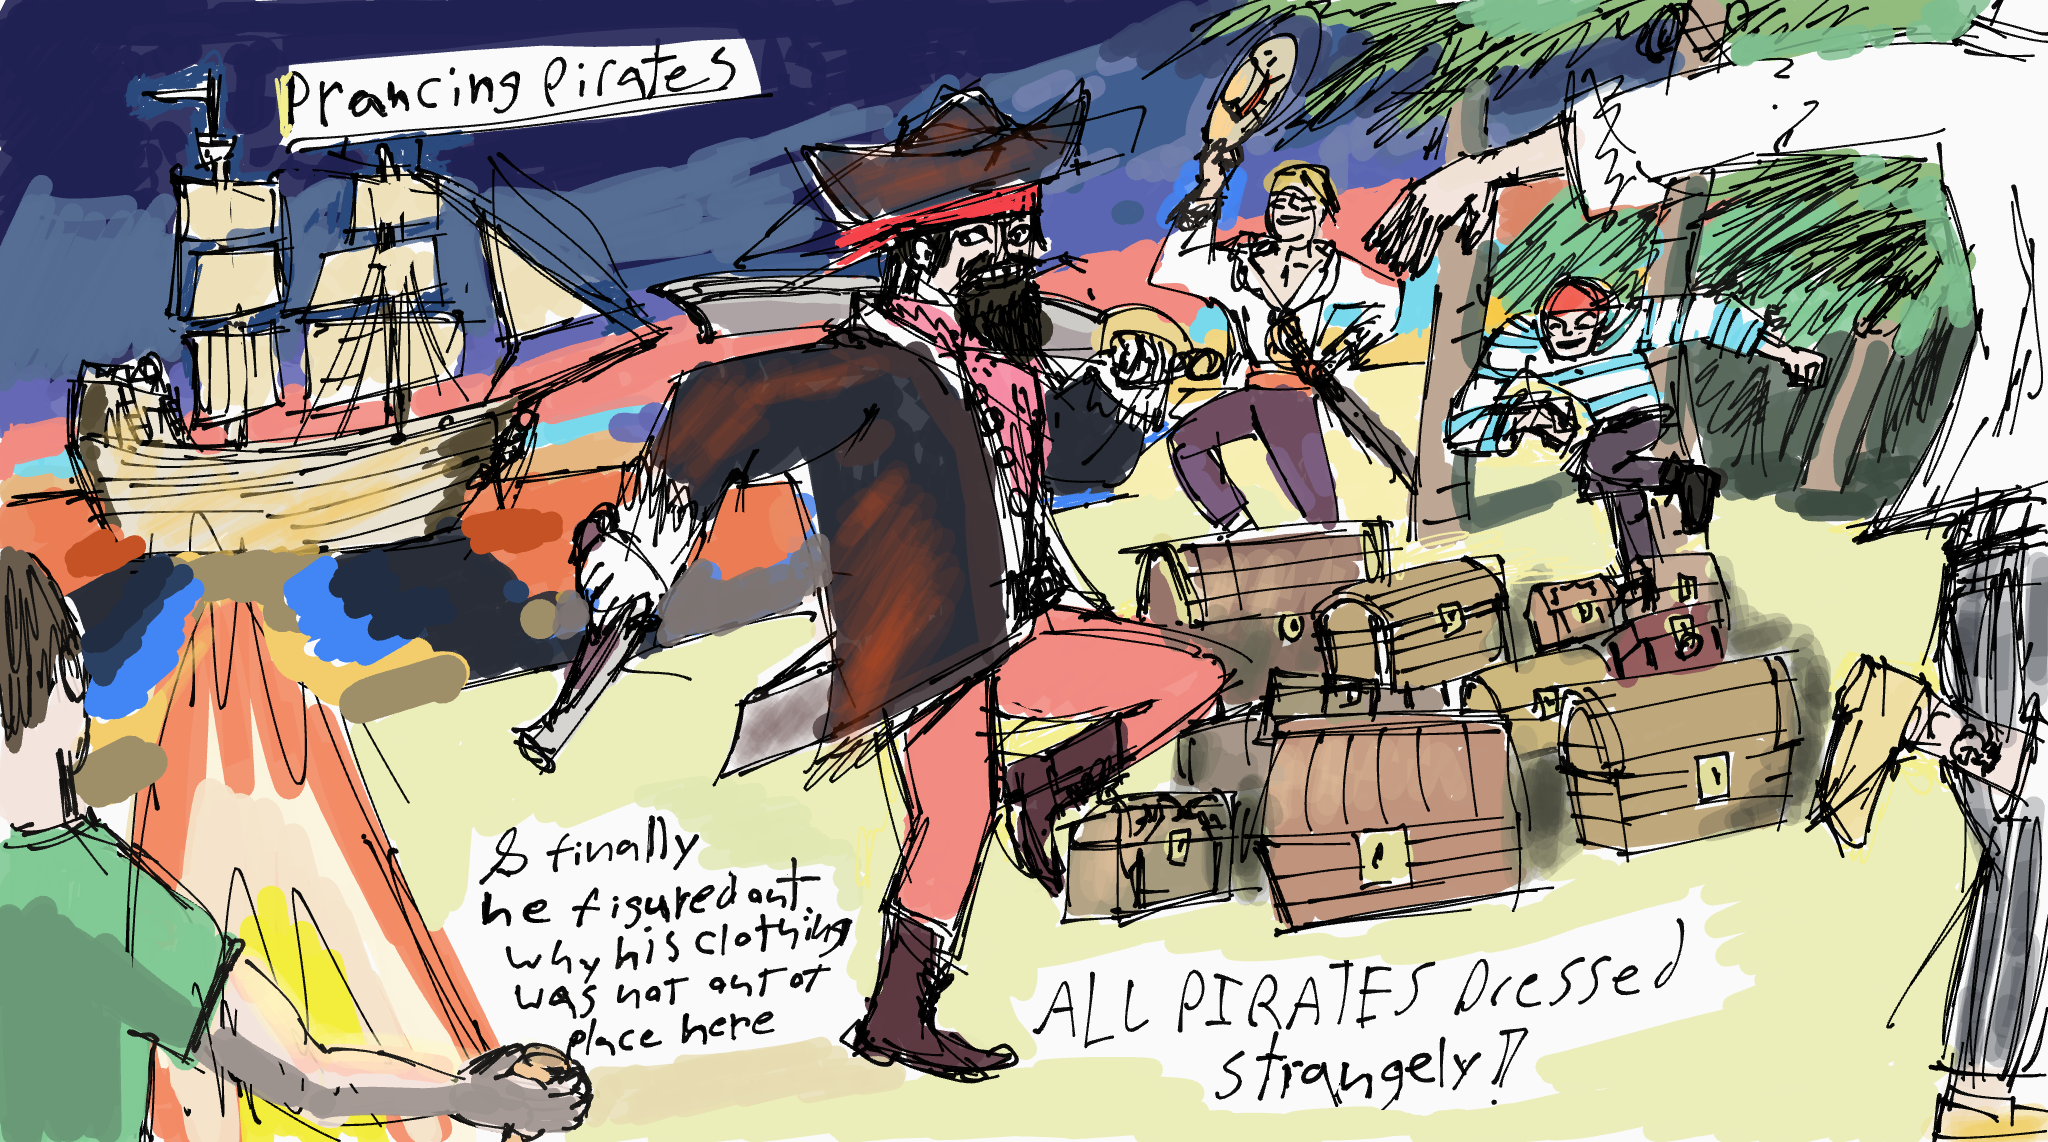 Prancing Pirates
& finally
he figured out
why his clothing
was not out of
place here
ALL PIRATES Dressed
strangely!
? ?